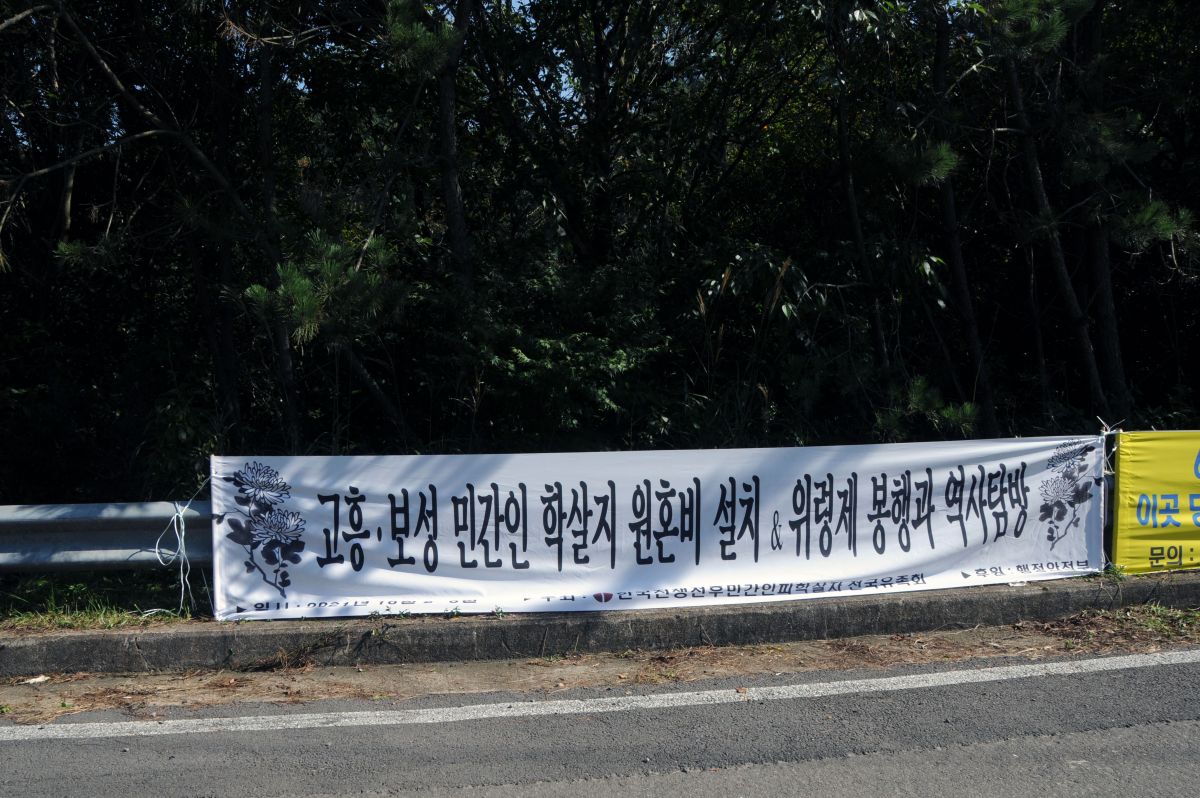 고흥·보성 민간인 학살지 원혼비 설치 & 위령제 봉행과 역사탐방
▶일시 : 2021년 10월 ▶주최 : 한국전쟁전후민간인피학살자 전국유족회 ▶후원 : 행정안전부
이곳
문의 :